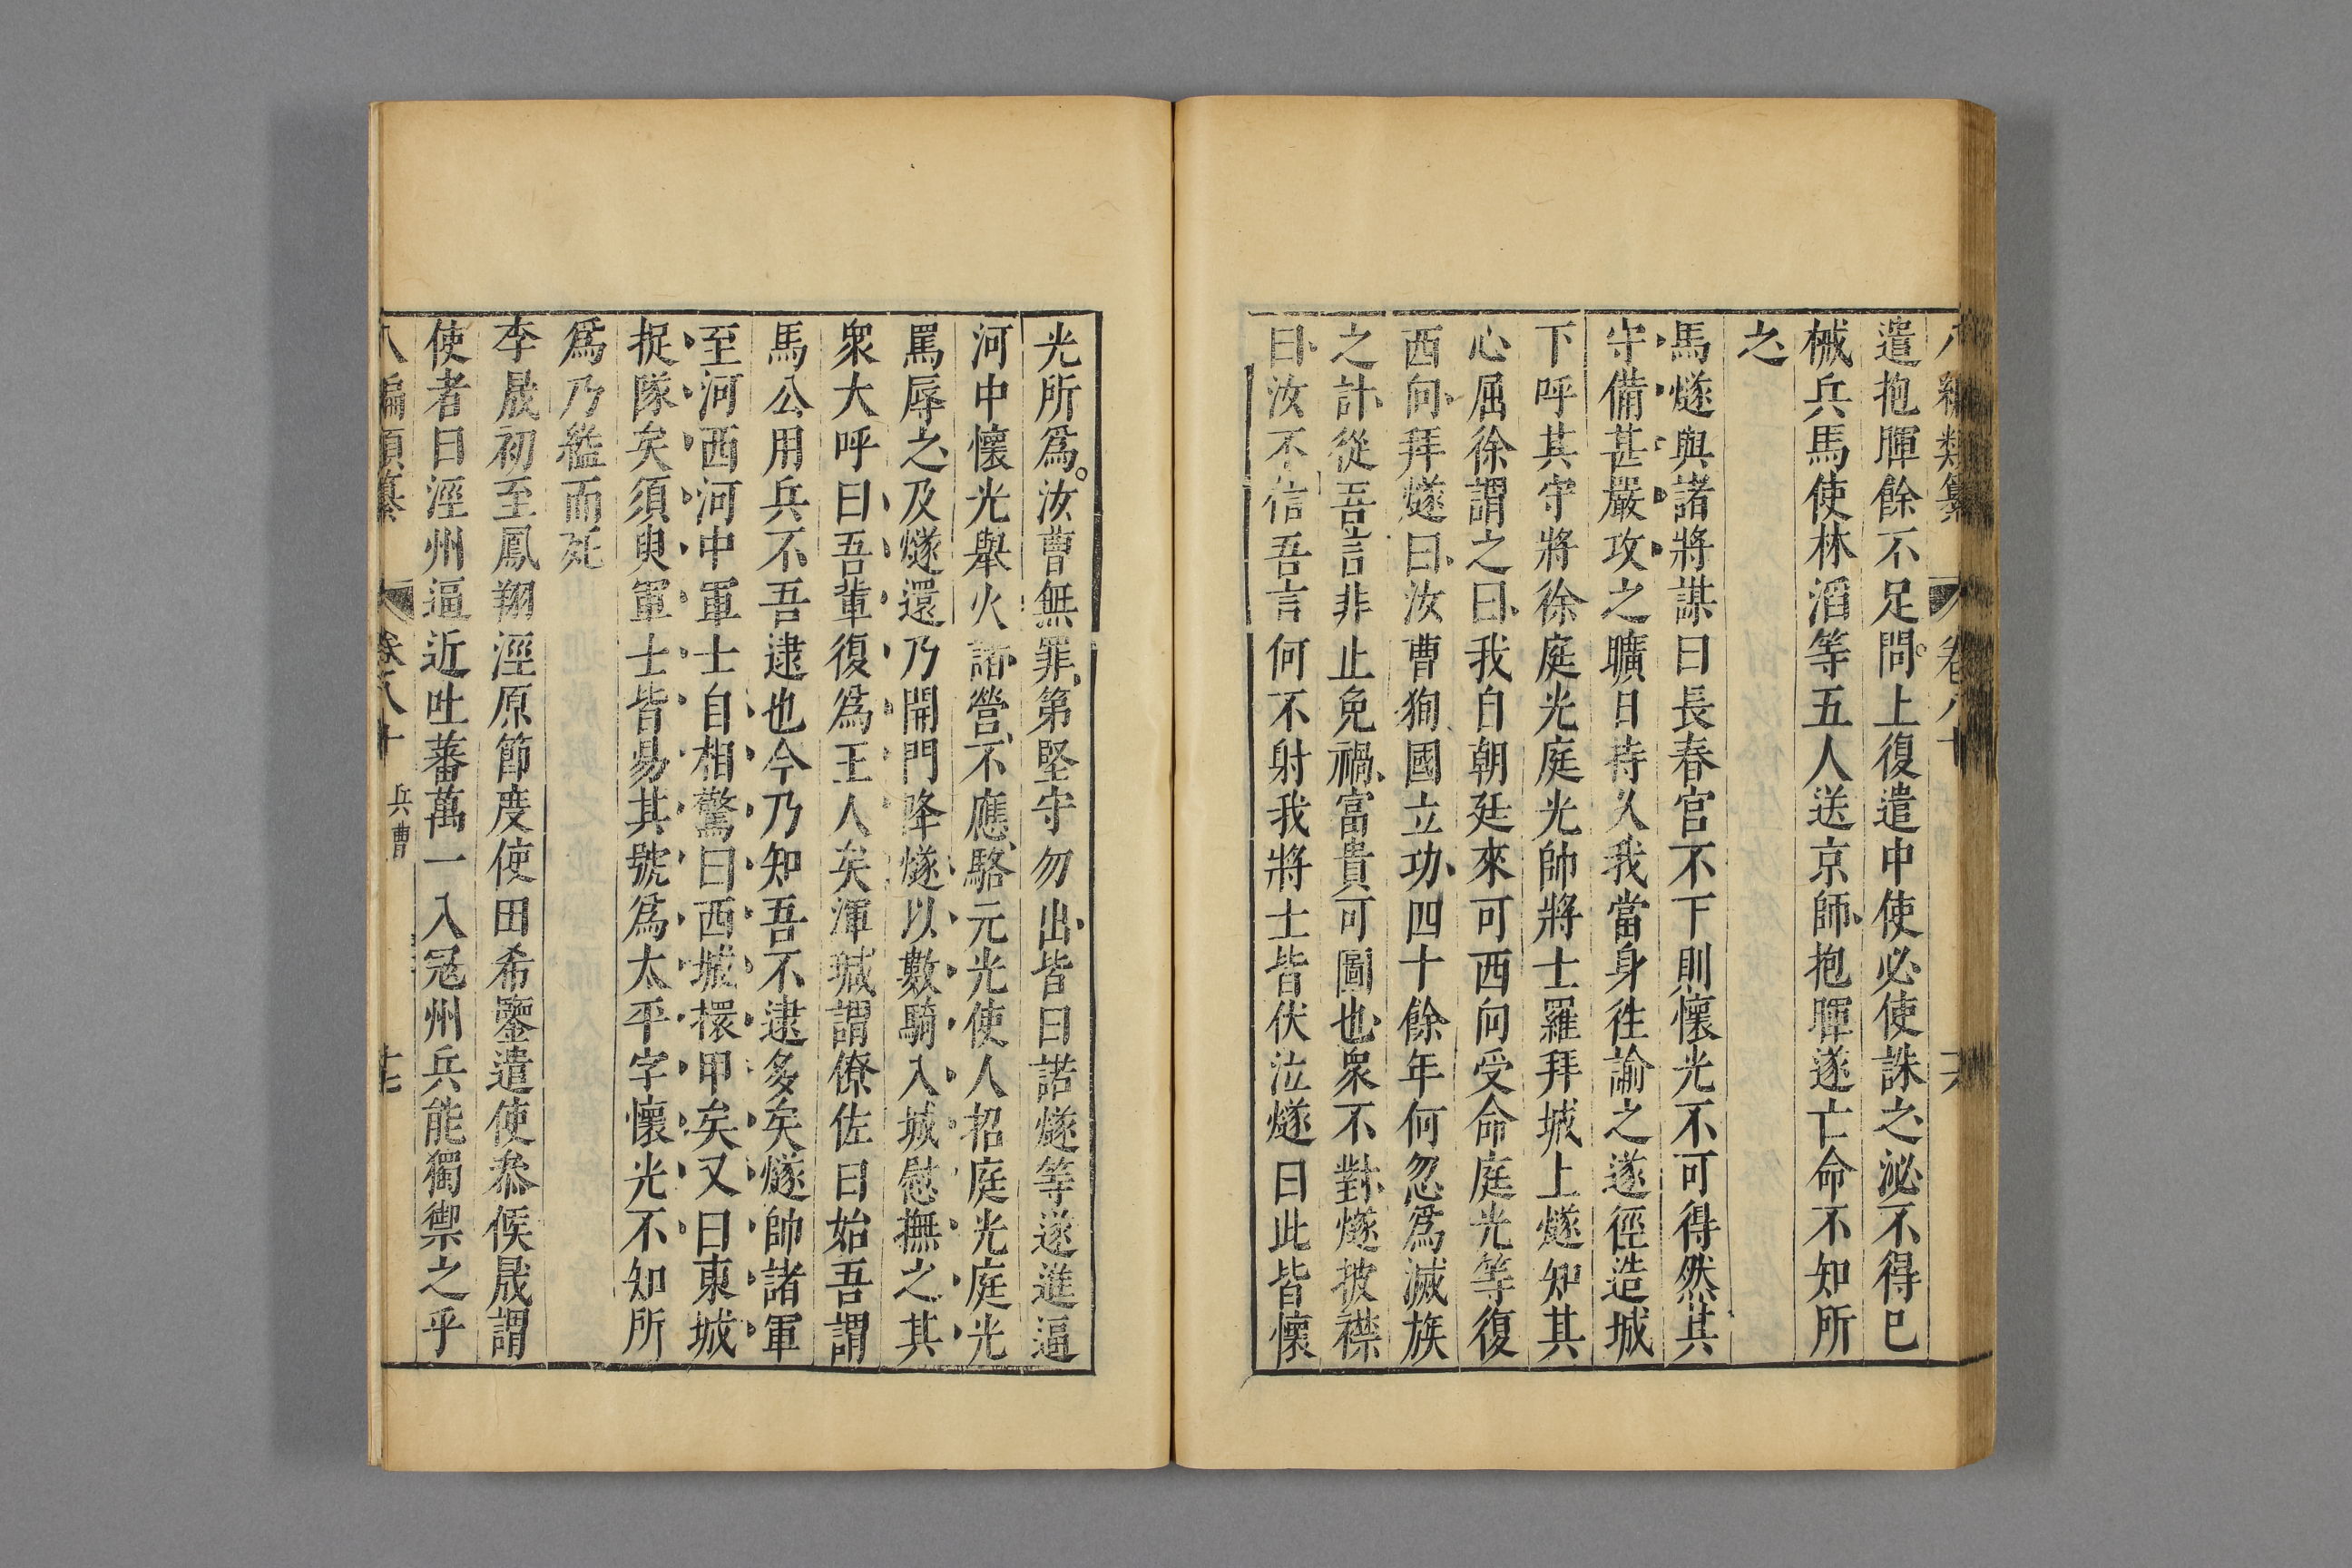 八編類纂 卷八十 六
遣抱暉餘不足問上復遣中使必使誅之泌不得已
械兵馬使林滔等五人送京師抱暉遂亡命不知所
之
馬燧與諸將謀曰長春宮不下則懷光不可得然其
守備甚嚴攻之曠日持久我當身徃諭之遂徑造城
下呼其守將徐庭光庭光帥將士羅拜城上燧知其
心屈徐謂之曰我自朝廷來可西向受命庭光等復
西向拜燧曰汝曹狥國立功四十餘年何忽爲滅族
之計從吾言非止免禍富貴可圖也衆不對燧披襟
曰汝不信吾言何不射我將士皆伏泣燧曰此皆懷
光所爲汝曹無罪第堅守勿出皆曰諾燧等遂進逼
河中懷光舉火諸營不應駱元光使人招庭光庭光
罵辱之及燧還乃開門降燧以數騎入城慰撫之其
衆大呼曰吾輩復爲王人矣渾瑊謂僚佐曰始吾謂
馬公用兵不吾逮也今乃知吾不逮多矣燧帥諸軍
至河西河中軍士自相驚曰西城擐甲矣又曰東城
捉隊矣須臾軍士皆易其號爲太平字懷光不知所
爲乃縊而死
李晟初至鳳翔涇原節度使田希鑒遣使叅候晟謂
使者曰涇州逼近吐蕃萬一入冦州兵能獨禦之乎
八編類纂 卷八十 兵曹